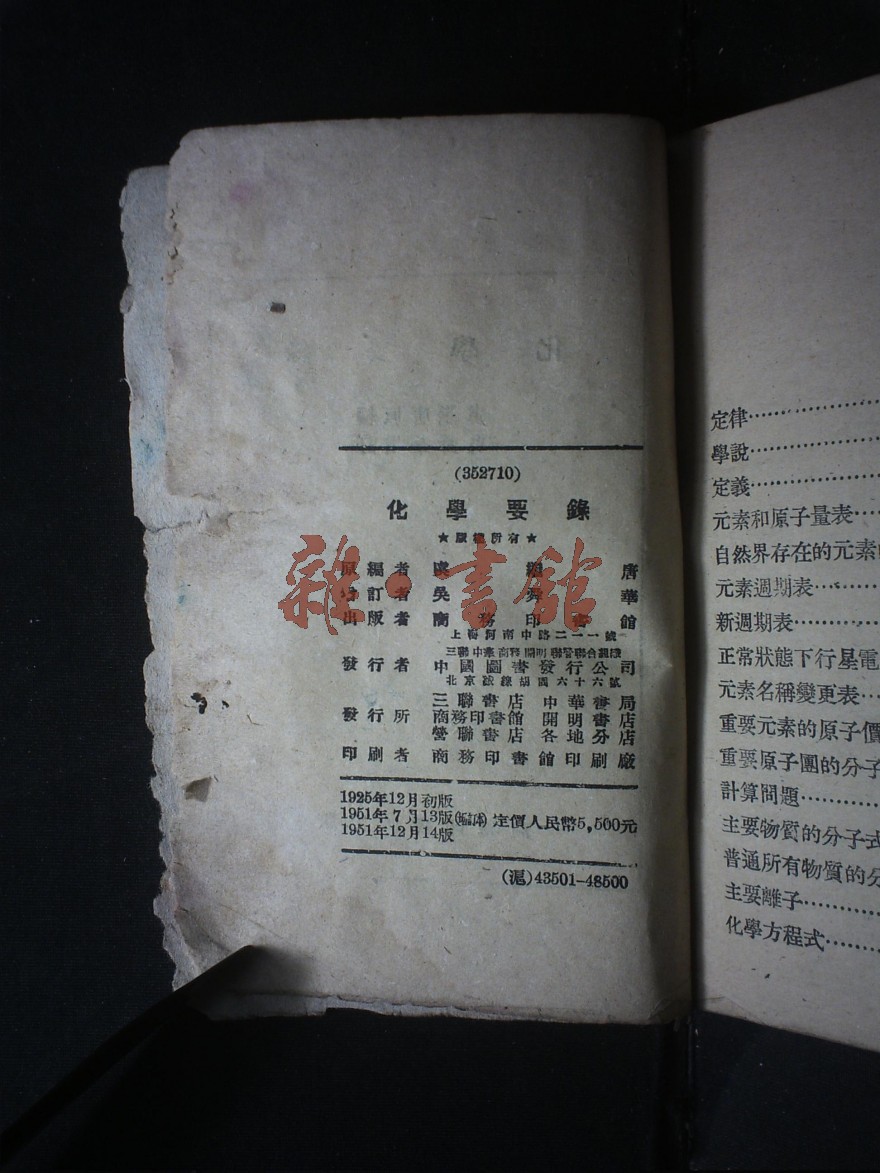 (352710)
化學要錄
★版權所有★
原編者 唐
增訂者 吳 華
出版者 商務印書館
上海河南中路二一一號
三聯中華商務開明聯營聯合組織
發行者 中國圖書發行公司
北京絨線胡同六十六號
三聯書店 中華書局
發行所 商務印書館 開明書店
營聯書店 各地分店
印刷者 商務印書館印刷廠
1925年12月初版
1951年7月13版(增訂本)定價人民幣5,500元
1951年12月14版
(滬)43501-48500
雜·書館
定律
學說
定義
元素和原子量表
自然界存在的元素
元素週期表
新週期表
正常狀態下行星電
元素名稱變更表
重要元素的原子價
重要原子團的分子
計算問題
主要物質的分子式
普通所有物質的分
主要離子
化學方程式